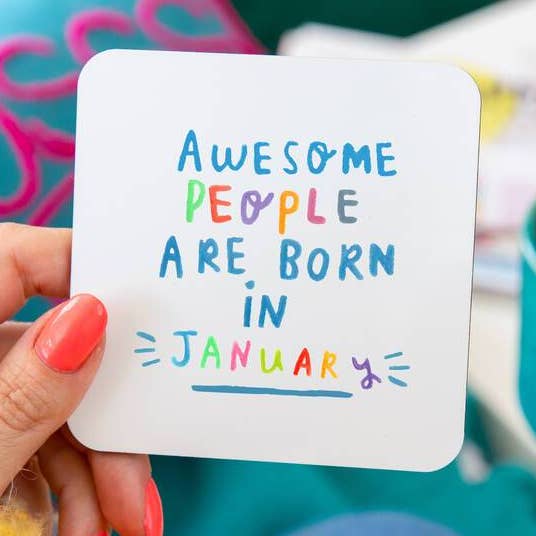 AWESOME
PEOPLE
ARE BORN
iN
JANUARY